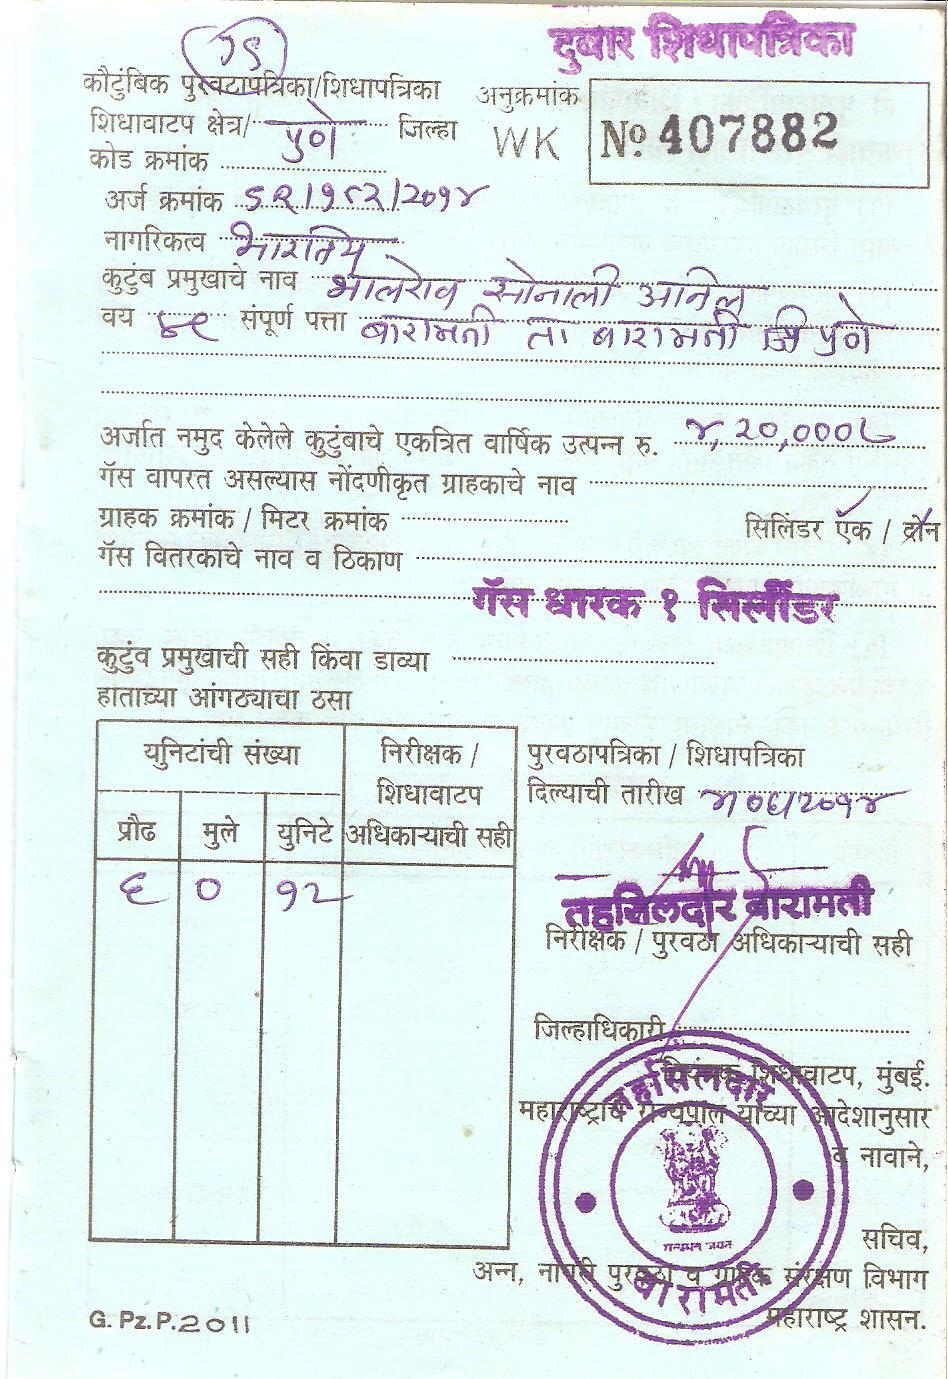 दुबार शिधापत्रिका
कौटुंबिक पुरवठापत्रिका/शिधापत्रिका अनुक्रमांक
शिधावाटप क्षेत्र/ पुणे जिल्हा WK No. 407882
कोड क्रमांक
अर्ज क्रमांक SR/१८२/२०१४
नागरिकत्व भारतिय
कुटुंब प्रमुखाचे नाव भालेराव सोनाली अनिल
वय ४९ संपूर्ण पत्ता बारामती ता बारामती जि पुणे
अर्जात नमुद केलेले कुटुंबाचे एकत्रित वार्षिक उत्पन्न रु. ४,२०,०००/-
गॅस वापरत असल्यास नोंदणीकृत ग्राहकाचे नाव
ग्राहक क्रमांक / मिटर क्रमांक सिलिंडर एक / दोन
गॅस वितरकाचे नाव व ठिकाण
गॅस धारक १ सिलींडर
कुटुंव प्रमुखाची सही किंवा डाव्या
हाताच्या आंगठ्याचा ठसा
युनिटांची संख्या निरीक्षक / पुरवठापत्रिका / शिधापत्रिका
शिधावाटप दिल्याची तारीख
प्रौढ मुले युनिटे अधिकाऱ्याची सही
६ ० १२
तहसिलदार बारामती
निरीक्षक / पुरवठा अधिकाऱ्याची सही
जिल्हाधिकारी
नियंत्रक शिधावाटप, मुंबई.
तहसिलदार
महाराष्ट्राचे राज्यपाल यांच्या आदेशानुसार
व नावाने,
सचिव,
अन्न, नागरी पुरवठा व ग्राहक संरक्षण विभाग
बारामती
महाराष्ट्र शासन.
G. Pz. P. 2011